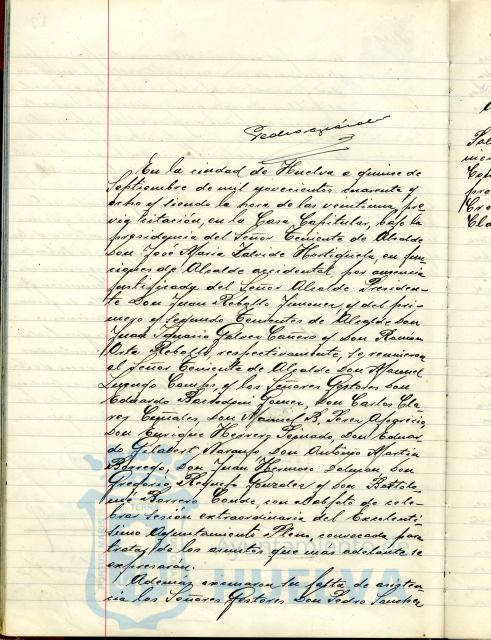 En la ciudad de Huelva a quince de
Septiembre de mil novecientos cuarenta y
ocho y siendo la hora de las veintiuna, pre
via citación, en la Casa Capitular, bajo la
presidencia del Señor Teniente de Alcalde
Don José María en fun
ciones de Alcalde accidental, por ausencia
justificada del Señor Alcalde Presiden-
te Don Juan Rebollo Jimenez y del pri-
mero y segundo Tenientes de Alcalde Don
Juan Ignacio Galvez Cañero y Don Ramón
Orta Rebollo, respectivamente, se reunieron
el Señor Teniente de Alcalde Don Manuel
Camps, y los Señores Gestores Don
Eduardo Gomez, Don Carlos Cla
Don Manuel B. Perez Aparicio
Don Enrique Herrero Don Eduar
do Gilabert Naranjo, Don Antonio Martin
Borrego, Don Juan Hermoso Don
Gregorio Gonzalez y Don Bartolo
mé Borrero Conde, con objeto de cele
brar sesión extraordinaria del Excelentí
simo Ayuntamiento Pleno, convocada para
tratar de los asuntos que mas adelante se
expresarán.
Además excusaron su falta de asisten
cia los Señores Gestores Don Pedro Sanchez
Ayuntamiento
HUELVA